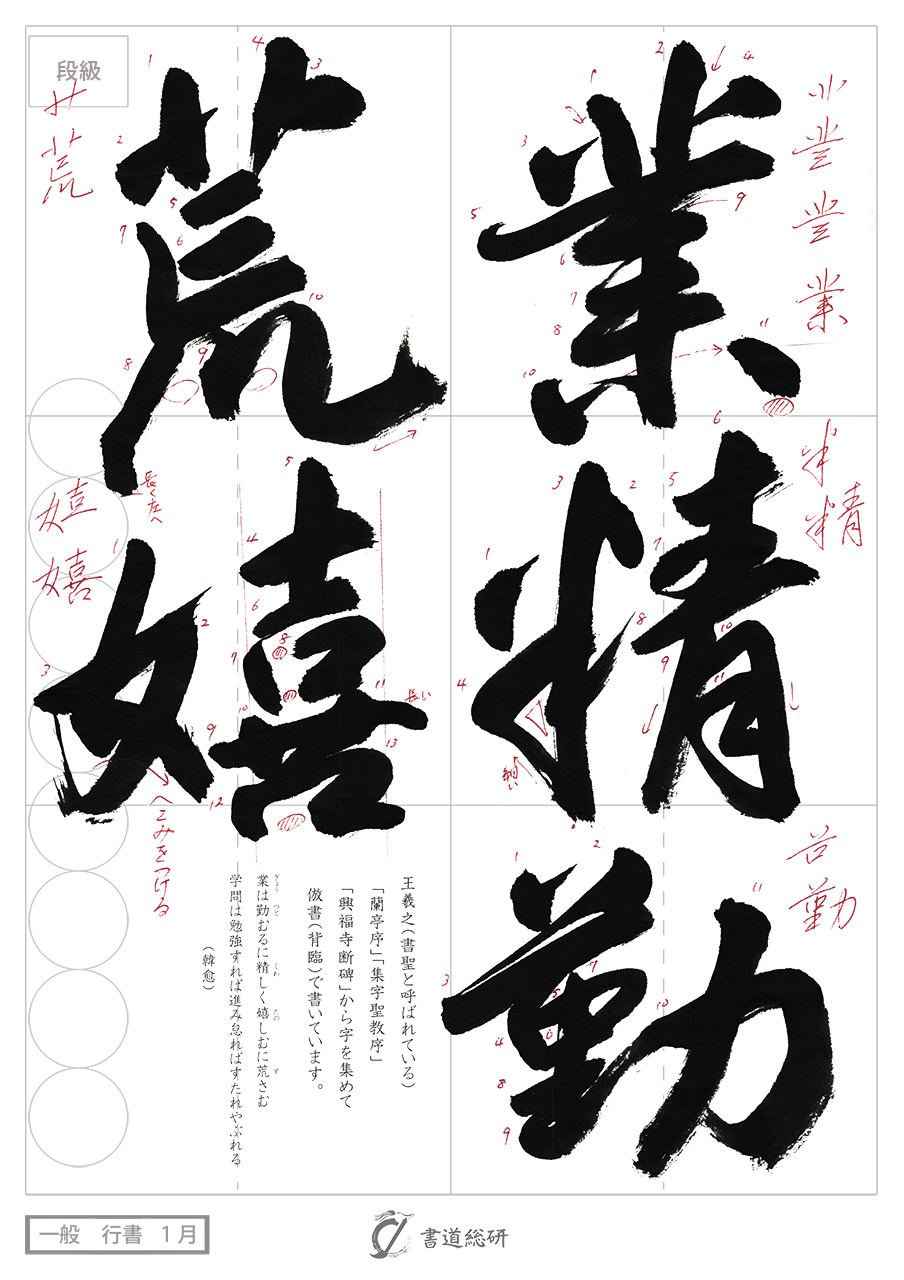 業精勤
荒嬉
段級
長く左へ
長い
へこみをつける
王羲之(書聖と呼ばれている)
「蘭亭序」「集字聖教序」
「興福寺断碑」から字を集めて
倣書(背臨)で書いています。
業は勤むるに精しく嬉しむに荒さむ
ぎょう つと くわ たの す
学問は勉強すれば進み怠ればすたれやぶれる
(韓愈)
一般 行書 1月
書道総研